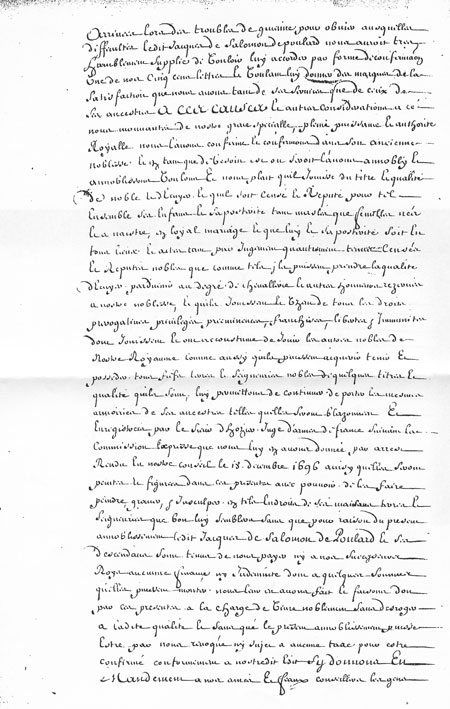 arrivées lors des troubles de guerre, pour obvier ausquelles
difficultes ledit Jacques de Salomon de poulard nous auroit tres
humblement Supplié de Vouloir luy accorder par forme de confirmation
Une de nos Cinq cens lettres Et Voulant luy donner des marques de la
Satisfaction que nous avons tant de ses Services que de ceux de
Ses ancestres A CES CAUSES Et autres considerations a ce
nous mouvantes de nostre grace specialle, pleine puissance Et authorité
Royalle nous l'avons confirmé Et confirmons dans son ancienne
noblesse Et en tant que de besoin est ou Seroit l'avons annobly Et
annoblissons Voulons Et nous plait quil Jouisse du titre Et qualité
de noble Et d'Escuyer Et quil soit censé Et Reputé pour tel
Ensemble Ses Enfans Et Sa posterité tant masles que femelles nés
Et a naistre, en loyal mariage Et que luy Et Sa posterité Soit En
tous lieux Et actes tant par Jugement qu'autrement tenus Censés
Et Reputez nobles que comme tels, Ils puissent prendre la qualité
d'Escuyer parvenir au degré de chevallerie Et autres honneurs reservés
a nostre noblesse, Et quils Jouissent Et Usent de tous les droits
prerogatives privileges, preeminences, franchises, libertés, Immunités
dont Jouissent Et ont accoustumé de Jouir les autres nobles de
Nostre Royaume comme aussy quils puissent acquerir tenir Et
posseder tous fiefs terres Et Seigneuries nobles de quelque titre Et
qualité quils Soient, luy permettons de continuer de porter les mesmes
armoiries de Ses ancestres telles quelles Seront blazonnées Et
Enregistrées par le Sieur d'hozier Juge d'armes de france Suivant la
Commission Expresse que nous luy en avons donnée, par arrest
Rendu En nostre conseil le 18. decembre 1696 ainsy quelles Seront
peintes Et figurées dans ces presentes avec pouvoir de les faire
peindre, graver, Insculper en tels Endroits de Ses maisons terres Et
Seigneuries que bon luy Semblera Sans que pour raison du present
annoblissement ledit Jacques de Salomon de Poulard Et Ses
descendans Soient tenus de nous payer ny a nos Successeurs
Roys aucune finance ny Indemnité dont a quelques Sommes
quelles puissent monter nous leur en avons fait Et faisons don
par ces presentes a la charge de Vivre noblement Sans deroger
a ladite qualité Et Sans que le present annoblissement puisse
Estre par nous revoqué ny sujet a aucune taxe pour estre
confirmé conformement a nostredit Edit Sy donnons En
Mandement a nos amés Et feaux conseillers les gens